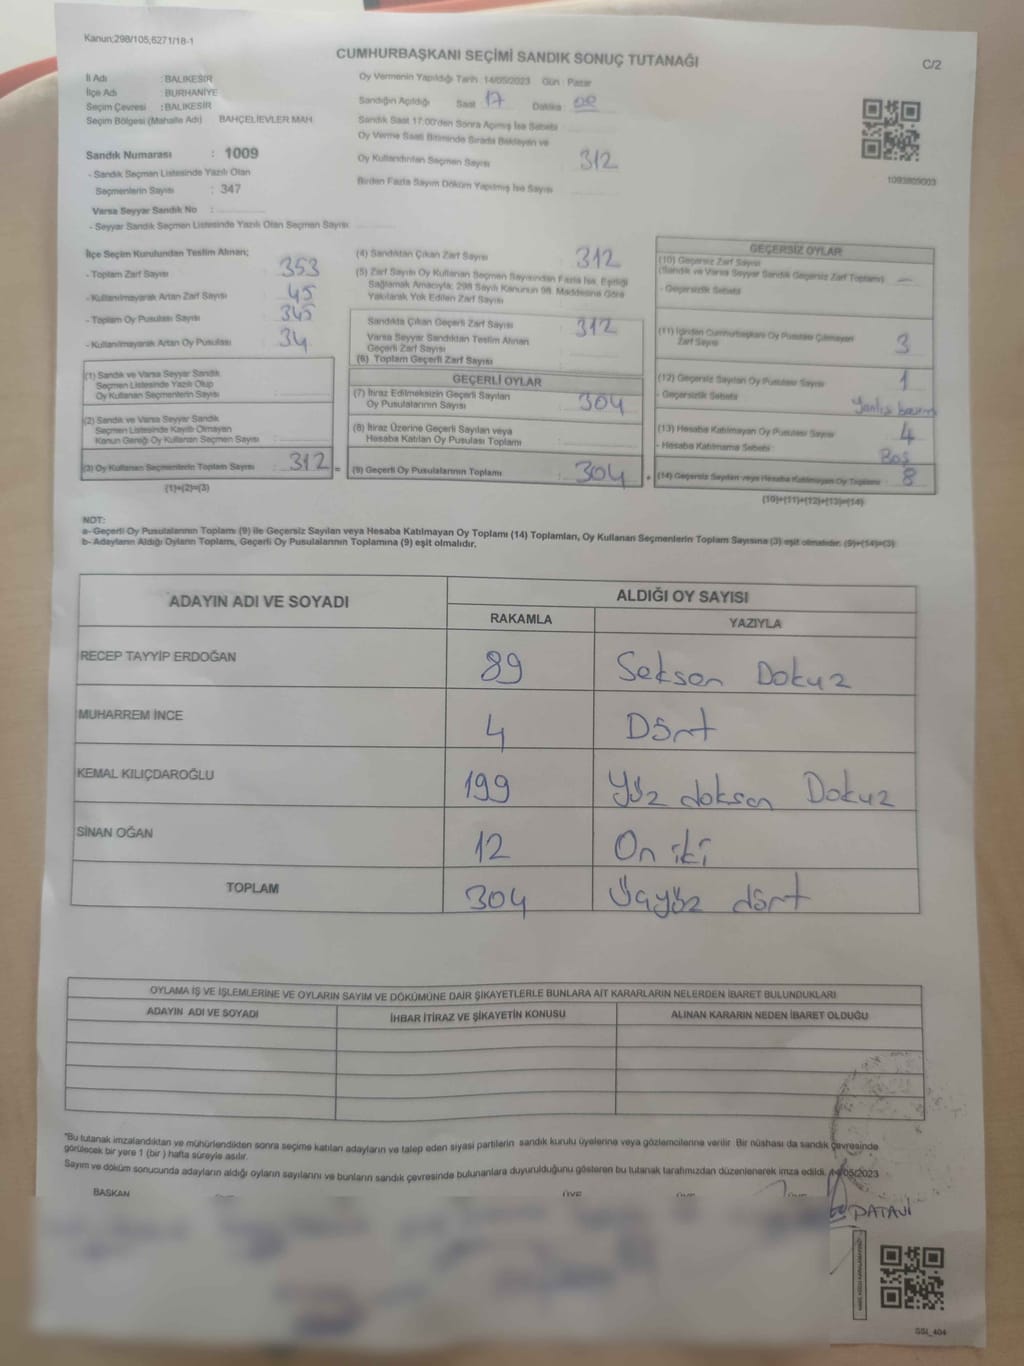 Kanun;298/105,6271/18-1
CUMHURBAŞKANI SEÇİMİ SANDIK SONUÇ TUTANAĞI
C/2
İl Adı : BALIKESİR
İlçe Adı : BURHANİYE
Seçim Çevresi : BALIKESİR
Seçim Bölgesi (Mahalle Adı) BAHÇELİEVLER MAH.
Sandık Numarası : 1009
- Sandık Seçmen Listesinde Yazılı Olan
Seçmenlerin Sayısı : 347
Varsa Seyyar Sandık No :
- Seyyar Sandık Seçmen Listesinde Yazılı Olan Seçmen Sayısı
Oy Vermenin Yapıldığı Tarih :14/05/2023 Gün : Pazar
Sandığın Açıldığı Saat 17 Dakika
Sandık Saat 17:00'den Sonra Açılmış İse Sebebi
Oy Verme Saati Bitiminde Sırada Bekleyen ve
Oy Kullandırılan Seçmen Sayısı 312
Birden Fazla Sayım Döküm Yapılmış İse Sayısı
1093809003
İlçe Seçim Kurulundan Teslim Alınan;
- Toplam Zarf Sayısı 353
- Kullanılmayarak Artan Zarf Sayısı 45
- Toplam Oy Pusulası Sayısı 345
- Kullanılmayarak Artan Oy Pusulası 34
(1) Sandık ve Varsa Seyyar Sandık
Seçmen Listesinde Yazılı Olup
Oy Kullanan Seçmenlerin Sayısı :
(2) Sandık ve Varsa Seyyar Sandık
Seçmen Listesinde Kayıtlı Olmayan
Kanun Gereği Oy Kullanan Seçmen Sayısı :
(3) Oy Kullanan Seçmenlerin Toplam Sayısı : 312 =
(1)+(2)=(3)
(4) Sandıktan Çıkan Zarf Sayısı 312
(5) Zarf Sayısı Oy Kullanan Seçmen Sayısından Fazla İse, Eşitliği
Sağlamak Amacıyla; 298 Sayılı Kanunun 98. Maddesine Göre
Yakılarak Yok Edilen Zarf Sayısı
Sandıkta Çıkan Geçerli Zarf Sayısı 312
Varsa Seyyar Sandıktan Teslim Alınan
Geçerli Zarf Sayısı
(6) Toplam Geçerli Zarf Sayısı
GEÇERLİ OYLAR
(7) İtiraz Edilmeksizin Geçerli Sayılan
Oy Pusulalarının Sayısı : 304
(8) İtiraz Üzerine Geçerli Sayılan veya
Hesaba Katılan Oy Pusulası Toplamı :
(9) Geçerli Oy Pusulalarının Toplamı : 304 +
GEÇERSİZ OYLAR
(10) Geçersiz Zarf Sayısı
(Sandık ve Varsa Seyyar Sandık Geçersiz Zarf Toplamı) —
- Geçersizlik Sebebi
(11) İçinden Cumhurbaşkanı Oy Pusulası Çıkmayan
Zarf Sayısı 3
(12) Geçersiz Sayılan Oy Pusulası Sayısı 1
- Geçersizlik Sebebi Yanlış
(13) Hesaba Katılmayan Oy Pusulası Sayısı 4
- Hesaba Katılmama Sebebi Boş
(14) Geçersiz Sayılan veya Hesaba Katılmayan Oy Toplamı 8
(10)+(11)+(12)+(13)=(14)
NOT:
a- Geçerli Oy Pusulalarının Toplamı (9) ile Geçersiz Sayılan veya Hesaba Katılmayan Oy Toplamı (14) Toplamları, Oy Kullanan Seçmenlerin Toplam Sayısına (3) eşit olmalıdır. (9)+(14)=(3)
b- Adayların Aldığı Oyların Toplamı, Geçerli Oy Pusulalarının Toplamına (9) eşit olmalıdır.
ADAYIN ADI VE SOYADI ALDIĞI OY SAYISI
RAKAMLA YAZIYLA
RECEP TAYYİP ERDOĞAN 89 Seksen Dokuz
MUHARREM İNCE 4 Dört
KEMAL KILIÇDAROĞLU 199 Yüz doksan Dokuz
SİNAN OĞAN 12 On iki
TOPLAM 304 Üçyüz dört
OYLAMA İŞ VE İŞLEMLERİNE VE OYLARIN SAYIM VE DÖKÜMÜNE DAİR ŞİKAYETLERLE BUNLARA AİT KARARLARIN NELERDEN İBARET BULUNDUKLARI
ADAYIN ADI VE SOYADI İHBAR İTİRAZ VE ŞİKAYETİN KONUSU ALINAN KARARIN NEDEN İBARET OLDUĞU
*Bu tutanak imzalandıktan ve mühürlendikten sonra seçime katılan adayların ve talep eden siyasi partilerin sandık kurulu üyelerine veya gözlemcilerine verilir. Bir nüshası da sandık çevresinde
görülecek bir yere 1 (bir ) hafta süreyle asılır.
Sayım ve döküm sonucunda adayların aldığı oyların sayılarını ve bunların sandık çevresinde bulunanlara duyurulduğunu gösteren bu tutanak tarafımızdan düzenlenerek imza edildi. 14/05/2023
BAŞKAN ÜYE ÜYE ÜYE
PATAVİ
SSİ_404